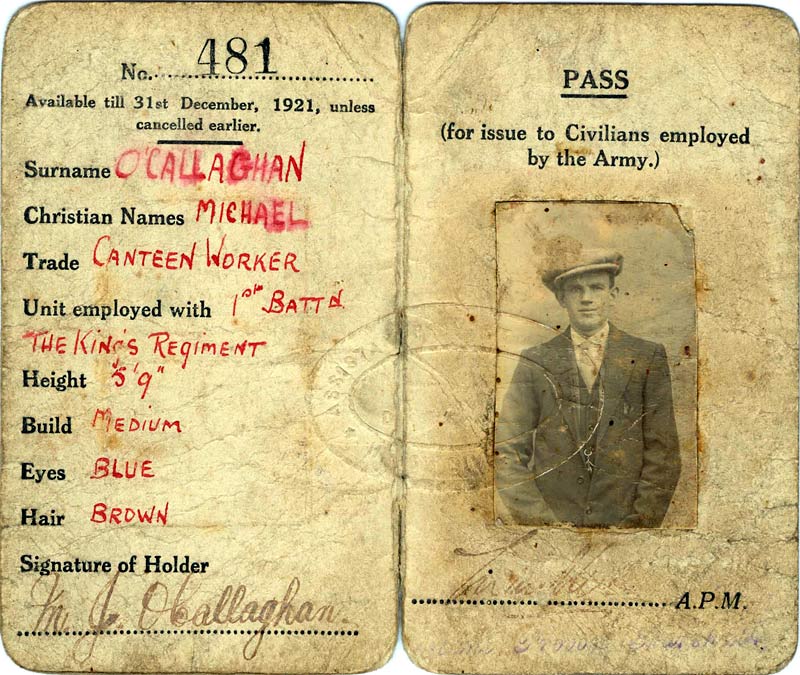 No. 481
Available till 31st December, 1921, unless
cancelled earlier.
Surname O'CALLAGHAN
Christian Names MICHAEL
Trade CANTEEN WORKER
Unit employed with 1st BATTN
THE KING'S REGIMENT
Height 5'9"
Build MEDIUM
Eyes BLUE
Hair BROWN
Signature of Holder
M. J. O'Callaghan.
PASS
(for issue to Civilians employed
by the Army.)
A.P.M.